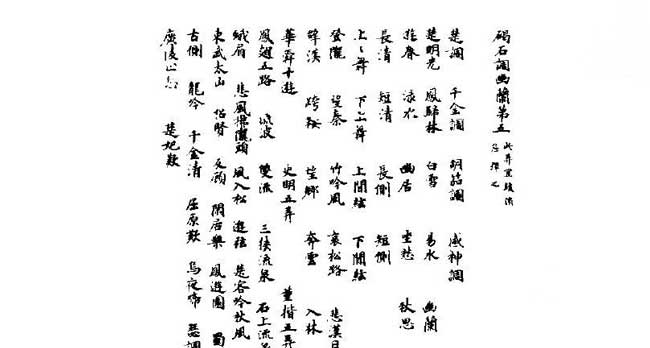 碣石調幽蘭第五
楚調 千金調 胡笳調 感神調
楚明光 鳳歸林 白雪 易水 幽蘭
遊春 淥水 幽居 坐愁 秋思
長清 短清 長側 短側
上〻舞 下上舞 上間絃 下間絃
登隴 望秦 竹吟風 哀松路
辭漢 跨鞍 望鄉 奔雲 入林
華舜十遊 史明五弄 董揩五弄
鳳翅五路 流波 雙流 三挾流泉 石上流
娥眉 悲風拂隴頭 風入松 遊絃 楚客吟秋風
東武太山 招賢 反顧 閑居樂 鳳遊園 蜀
古側 龍吟 千金清 屈原歎 烏夜啼 瑟調
廣陵止息 楚妃歎